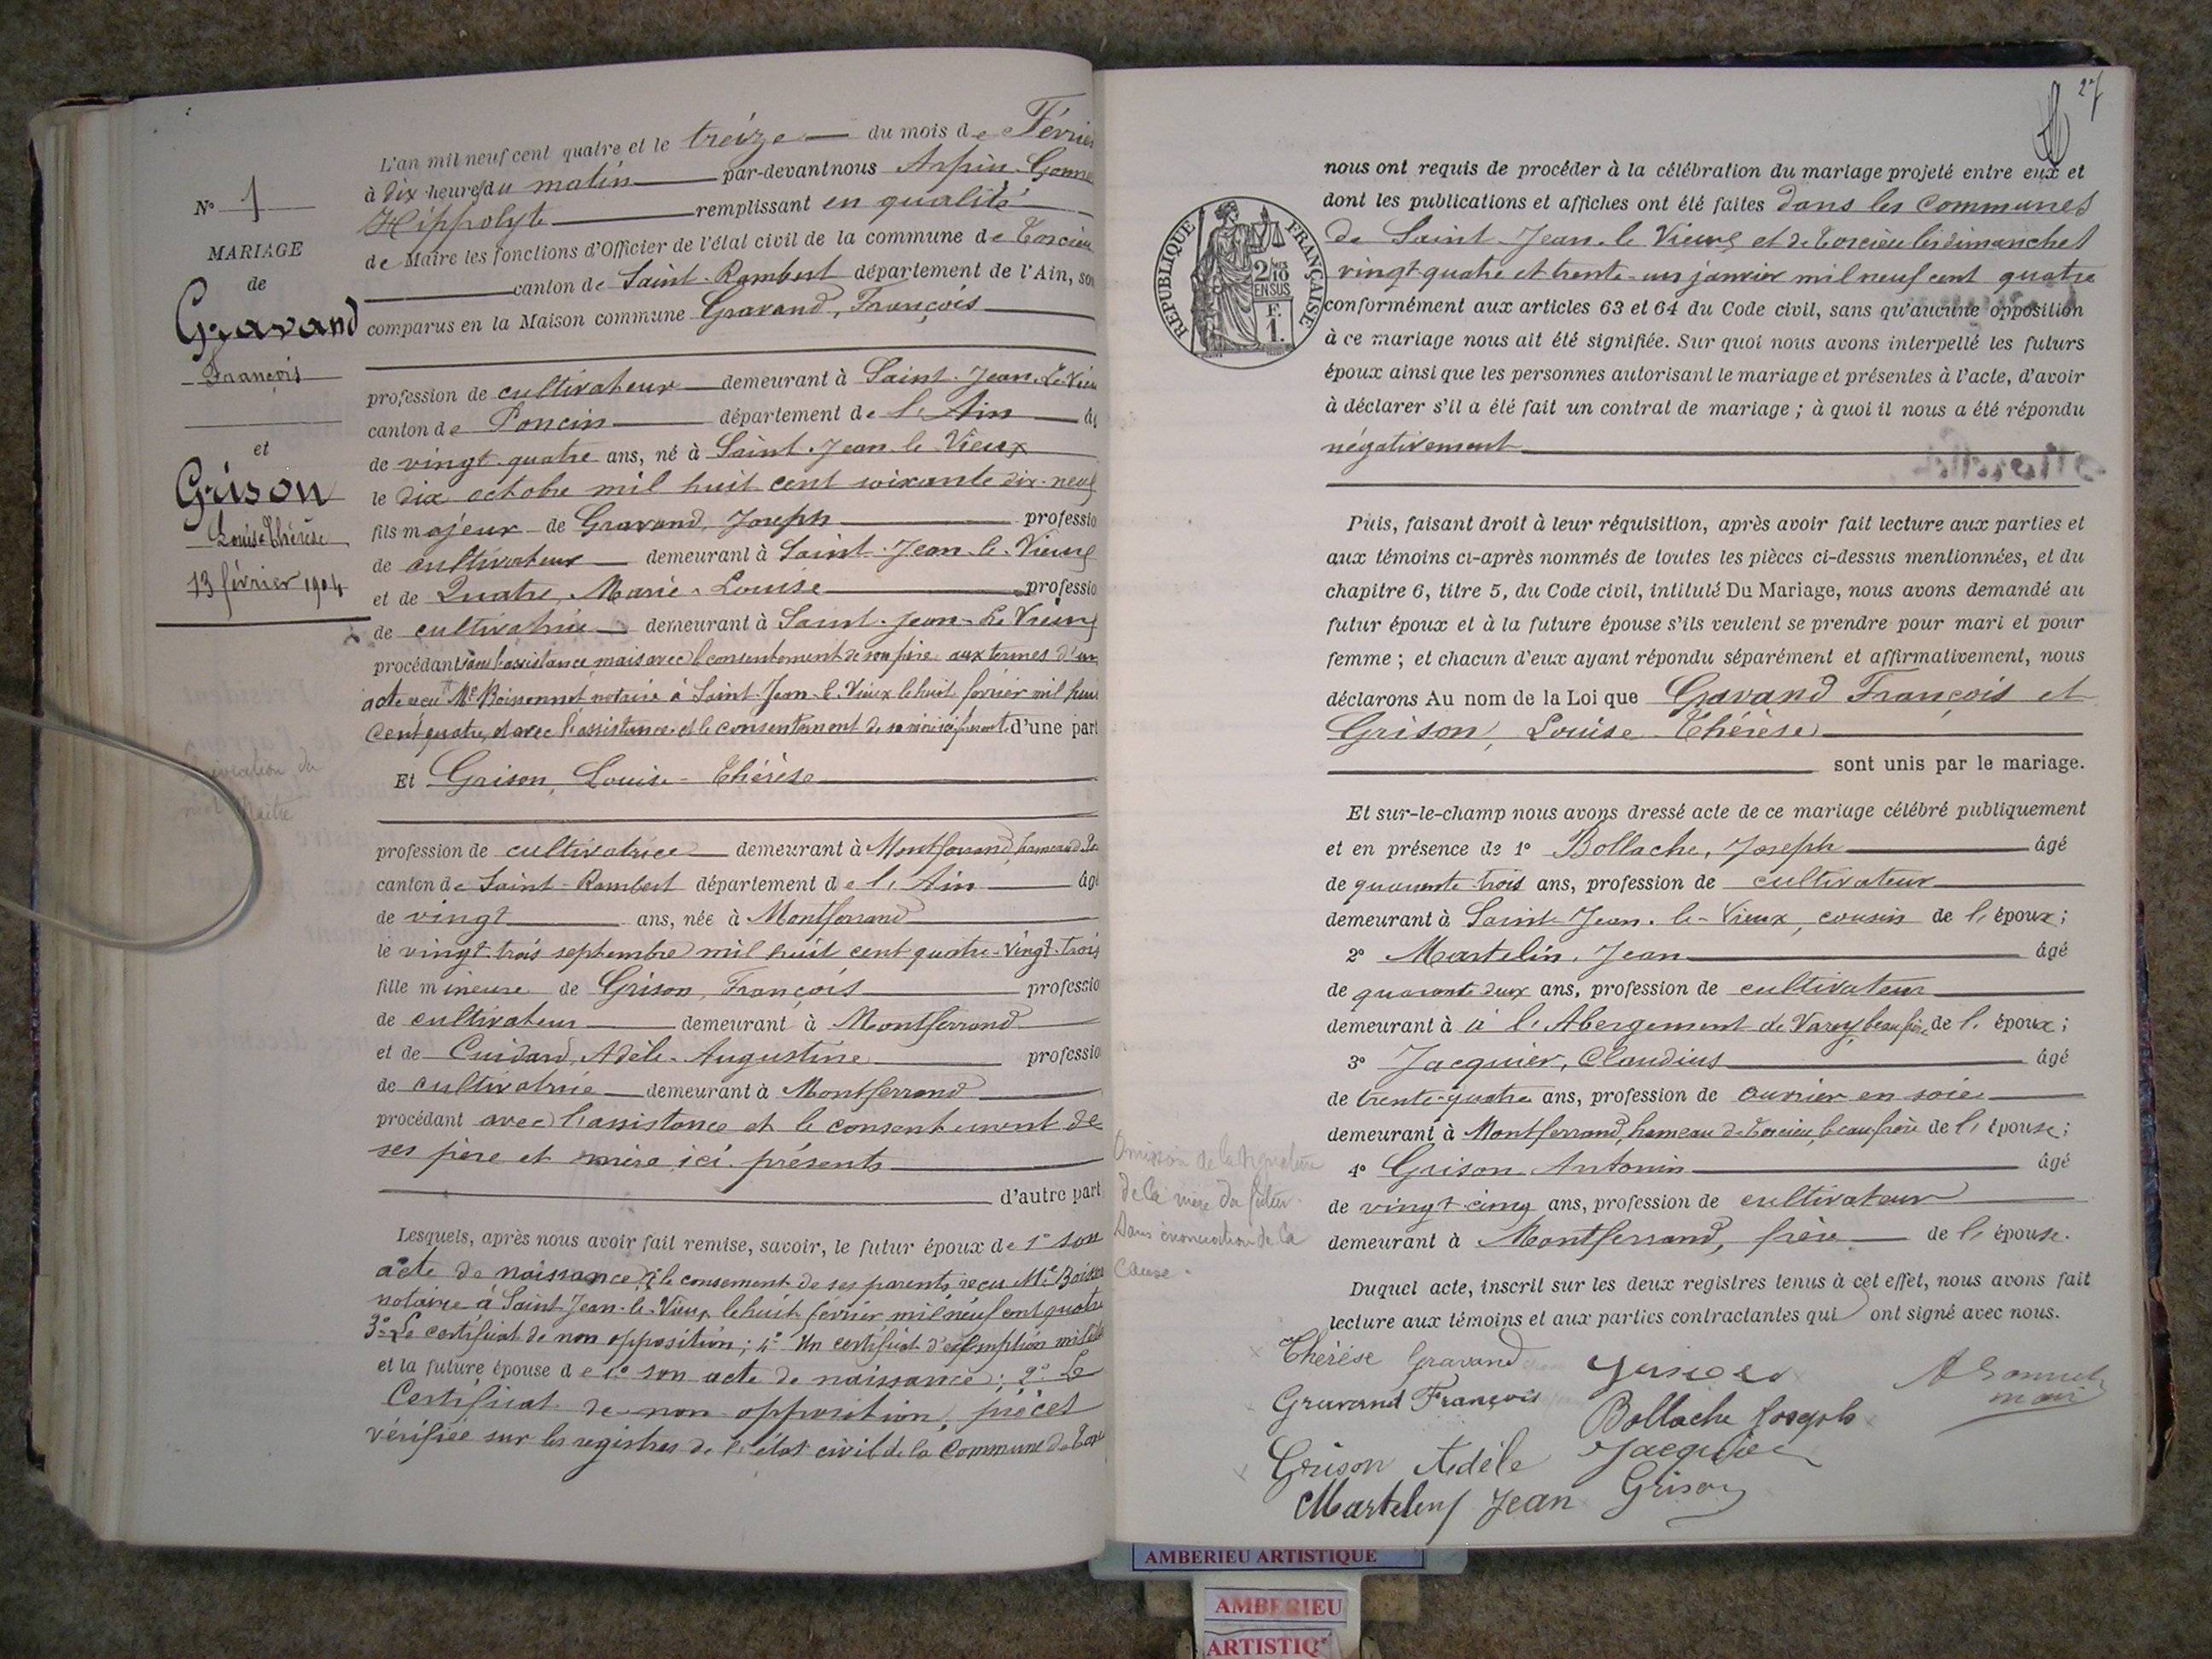 N° 1
MARIAGE
de
Gravand
François
et
Grison
Louise Thérèse
13 février 1904
L'an mil neuf cent quatre et le treize du mois de Février
à dix heures du matin par-devant nous Arpin
Hippolyte remplissant en qualité
de Maire les fonctions d'Officier de l'état civil de la commune de Torcieu
canton de Saint-Rambert département de l'Ain, son
comparus en la Maison commune Gravand, François
profession de cultivateur demeurant à Saint-Jean-Le-Vieu
canton de Poncin département de l'Ain âg
de vingt-quatre ans, né à Saint-Jean-le-Vieux
le dix octobre mil huit cent soixante dix-neuf
fils majeur de Gravand, Joseph professio
de cultivateur demeurant à Saint-Jean-le-Vieux
et de Quatre, Marie-Louise professio
de cultivatrice demeurant à Saint-Jean-Le Vieux
procédant sans l'assistance, mais avec le consentement de son père aux termes d'un
acte reçu Me Boissonnet, notaire à Saint-Jean-le-Vieux le huit février mil neuf
cent quatre, et avec l'assistance et le consentement de sa mère ici présent d'une part
Et Grison, Louise-Thérèse
profession de cultivatrice demeurant à Montferrand, hameau de To
canton de Saint-Rambert département de l'Ain âgé
de vingt ans, née à Montferrand
le vingt-trois septembre mil huit cent quatre-vingt-trois
fille mineure de Grison, François professio
de cultivateur demeurant à Montferrand
et de Cuidard, Adèle-Augustine professio
de cultivatrice demeurant à Montferrand
procédant avec l'assistance et le consentement de
ses père et mère ici présents
d'autre part
Lesquels, après nous avoir fait remise, savoir, le futur époux de 1° son
acte de naissance, 2° le consement de ses parents, reçu Me Boisson
notaire à Saint-Jean-le-Vieux, le huit février mil neuf cent quatre
3° Le certificat de non opposition; 4° Un certificat d'exemption milit
et la future épouse de 1° son acte de naissance; 2° Le
Certificat de non opposition; pièces
vérifiée sur les registres de l'état civil de la Commune de Torc
27
RÉPUBLIQUE FRANÇAISE
2/10
EN SUS
F.
1.
nous ont requis de procéder à la célébration du mariage projeté entre eux et
dont les publications et affiches ont été faites dans les Communes
de Saint-Jean-le-Vieux et de Torcieu les dimanches
vingt-quatre et trente-un janvier mil neuf cent quatre
conformément aux articles 63 et 64 du Code civil, sans qu'aucune opposition
à ce mariage nous ait été signifiée. Sur quoi nous avons interpellé les futurs
époux ainsi que les personnes autorisant le mariage et présentes à l'acte, d'avoir
à déclarer s'il a été fait un contrat de mariage ; à quoi il nous a été répondu
négativement
Puis, faisant droit à leur réquisition, après avoir fait lecture aux parties et
aux témoins ci-après nommés de toutes les pièces ci-dessus mentionnées, et du
chapitre 6, titre 5, du Code civil, intitulé Du Mariage, nous avons demandé au
futur époux et à la future épouse s'ils veulent se prendre pour mari et pour
femme ; et chacun d'eux ayant répondu séparément et affirmativement, nous
déclarons Au nom de la Loi que Gravand François et
Grison, Louise-Thérèse
sont unis par le mariage.
Et sur-le-champ nous avons dressé acte de ce mariage célébré publiquement
et en présence de 1° Bollache, Joseph âgé
de quarante-trois ans, profession de cultivateur
demeurant à Saint-Jean-le-Vieux, cousin de l'époux ;
2° Martelin, Jean âgé
de quarante deux ans, profession de cultivateur
demeurant à à l'Abergement de Varey beau frère de l'époux ;
3° Jacquier, Claudius âgé
de trente-quatre ans, profession de ouvrier en soie
demeurant à Montferrand, hameau de Torcieu, beau frère de l'épouse ;
4° Grison Antonin âgé
de vingt-cinq ans, profession de cultivateur
demeurant à Montferrand, frère de l'épouse.
Duquel acte, inscrit sur les deux registres tenus à cet effet, nous avons fait
lecture aux témoins et aux parties contractantes qui ont signé avec nous.
Omission de la signature
de la mère du futur
Sans énonciation de la
cause.
Thérèse Gravand
Gravand François
Bollache Joseph
Grison Adèle
Jacquier
Martelin Jean
Grison
AMBERIEU ARTISTIQUE
AMBERIEU
ARTISTIQ